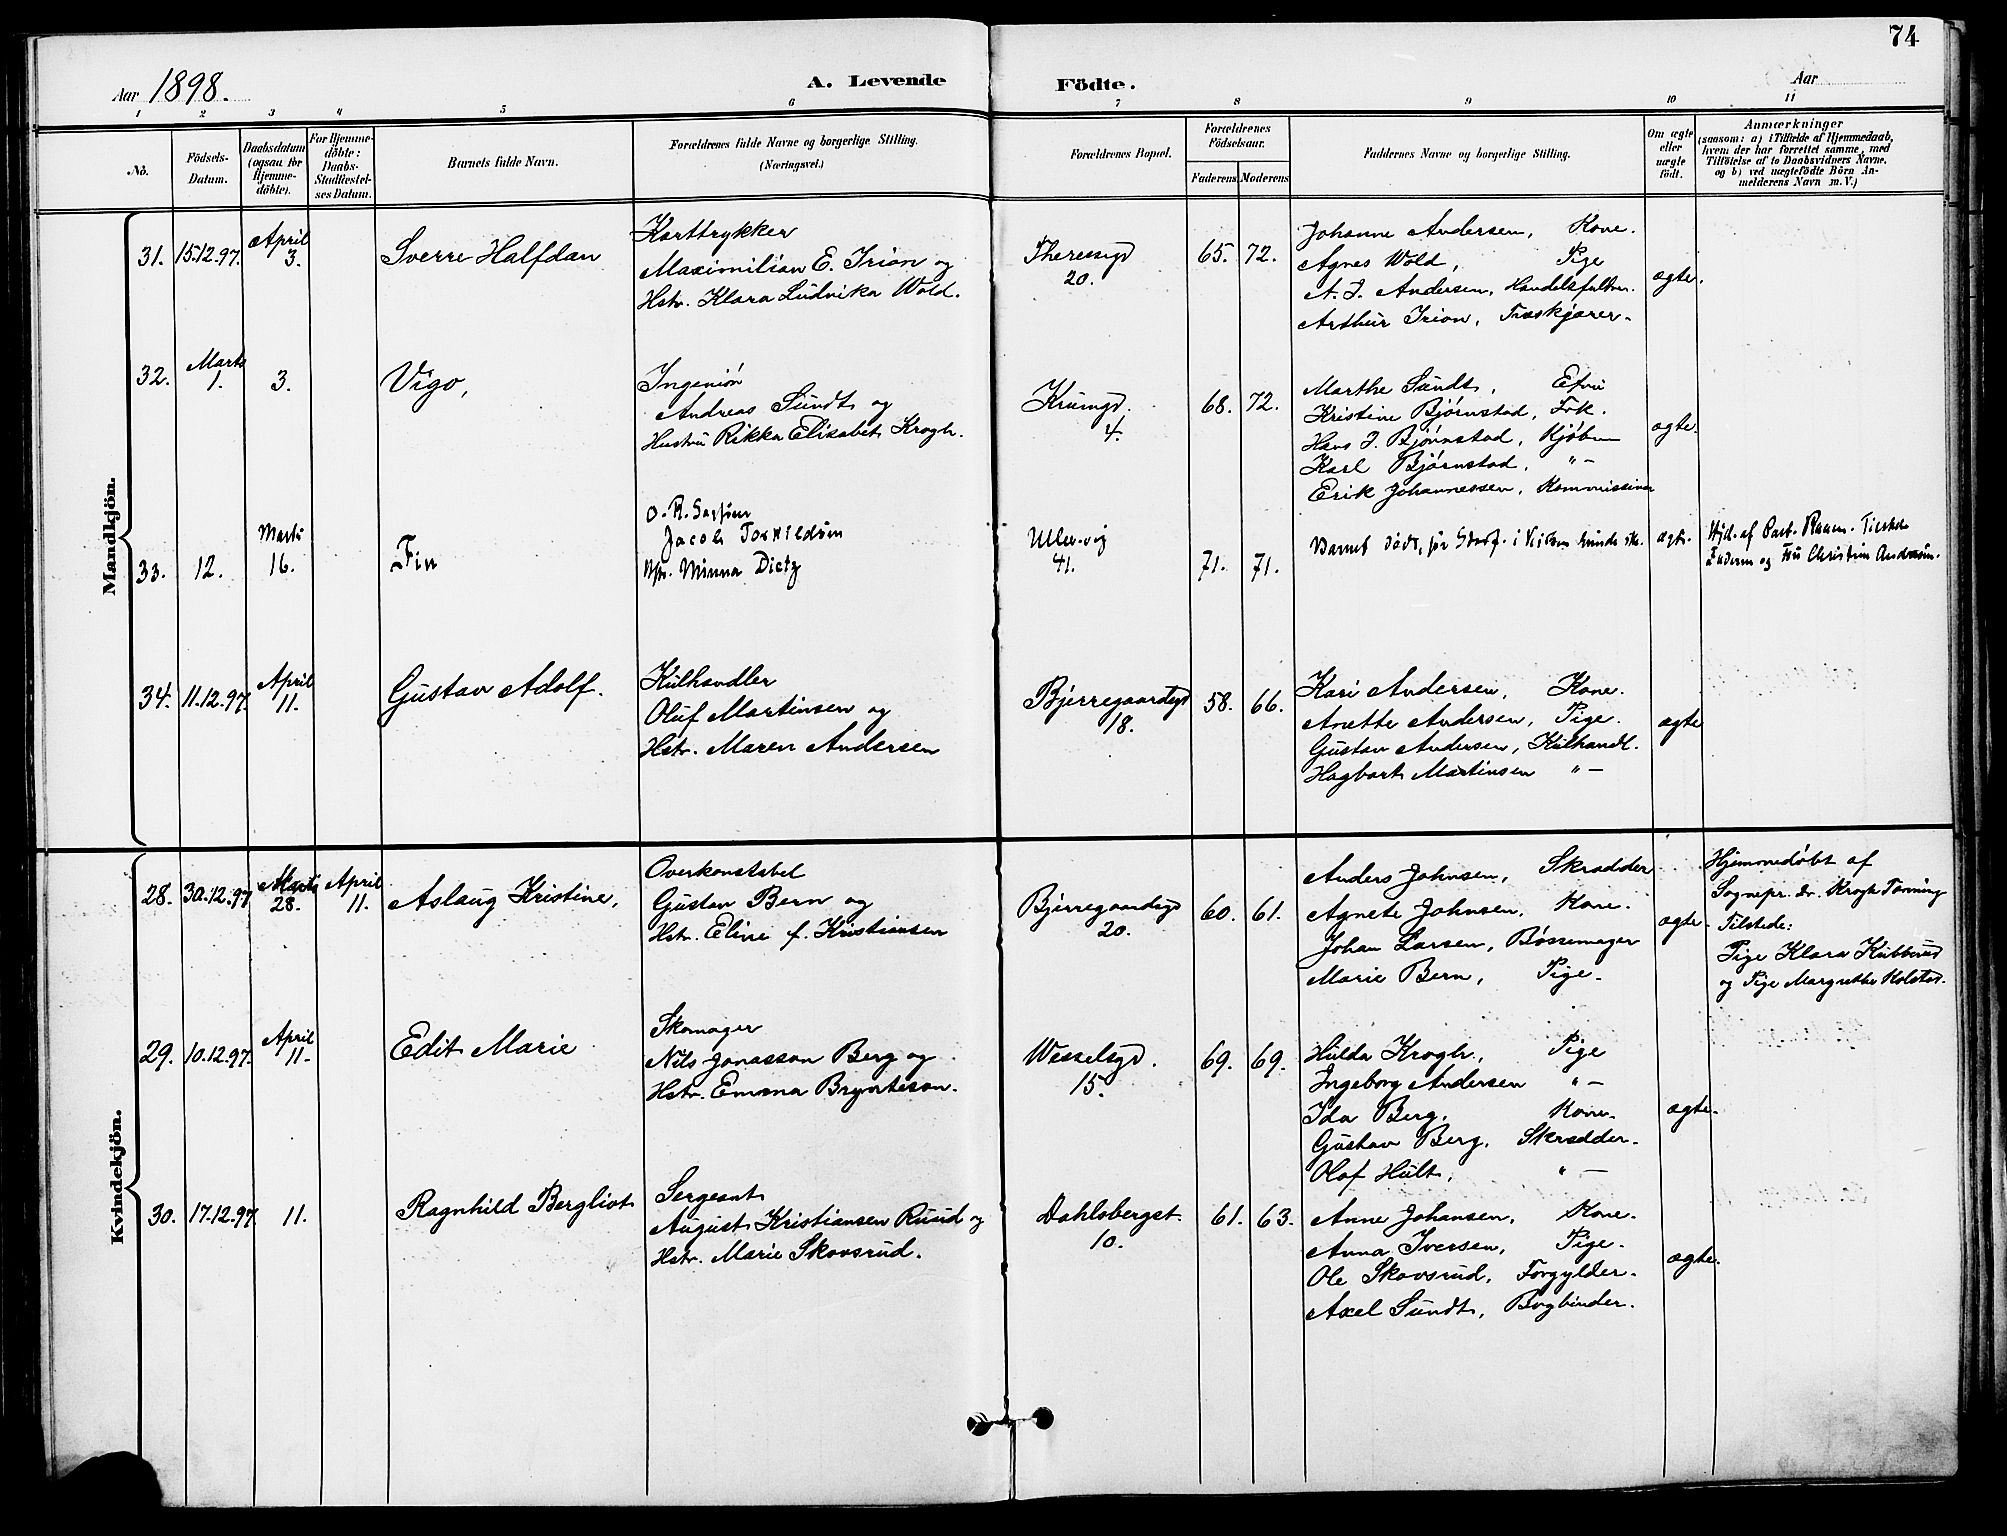 74
Aar 1898.
A. Levende Födte.
Aar
1 2 3 4 5 6 7 8 9 10 11
No.
Födsels-
Datum.
Daabsdatum
(ogsaa for
Hjemme-
döbte).
For Hjemme-
döbte:
Daabs-
Stadfæstel-
ses Datum.
Barnets fulde Navn.
Forældrenes fulde Navne og borgerlige Stilling.
(Næringsvei.)
Forældrenes Bopæl.
Forældrenes
Födselsaar.
Faderens Moderens
Faddernes Navne og borgerlige Stilling.
Om ægte
eller
uægte
födt.
Anmærkninger
(saasom: a) i Tilfælde af Hjemmedaab,
hvem der har forrettet samme, med
Tilföielse af to Daabsvidners Navne,
og b) ved uægtefödte Börn An-
melderens Navn m. V.)
Mandkjön.
31. 15.12.97. April 3. Sverre Halfdan
Karttrykker
Maximilian E. Irion og
Hstr. Klara Ludvika Wold.
Theresegd
20.
65. 72.
Johanne Andersen, Kone.
Agnes Wold, Pige
A. J. Andersen, Handelsfuldm.
Arthur Irion, Træskjærer.
ægte.
32. Marts 1. 3. Vigo,
Ingeniør
Andreas Sundt og
Hustru Rikka Elisabet Krogh.
Krumgd.
4.
68. 72.
Marthe Sundt, Efru
Kristine Bjørnstad, Frk.
Hans J. Bjørnstad, Kjøbm
Karl Bjørnstad, "–
Erik Johannessen, Kommissioner
ægte.
33. 12. Marts 16. Fin
Jacob Torkildsen
Hstr. Minna Dietz
Ullev.vej
41.
71. 71.
Barnet døde, før
ægte.
Hjd. af Past. Raaen. Tilstede
Faderen og Fru Christine Andresen.
34. 11.12.97. April 11. Gustav Adolf.
Kulhandler
Oluf Martinsen og
Hstr. Maren Andersen
Bjerregaardsgd
18.
58. 66.
Kari Andersen, Kone.
Anette Andersen, Pige.
Gustav Andersen, Kulhandl.
Hagbart Martinsen "–
ægte
Kvindekjön.
28. 30.12.97 Marts 28. April 11. Aslaug Kristine,
Overkonstabel
Gustav Bern og
Hstr. Eline f. Kristiansen
Bjerregaardsgd
20.
60. 61.
Anders Johnsen, Skrædder
Agnete Johnsen, Kone.
Johan Larsen, Bøssemager
Marie Bern, Pige.
ægte.
Hjemmedøbt af
Sognepr. dr. Krogh Tonning
Tilstede:
Pige Klara Kubberud
og Pige Margrethe Kolstad.
29. 10.12.97. April 11. Edit Marie
Skomager
Nils Jonasson Berg og
Hstr. Emma Brynteson.
Wesselsgd.
15.
69. 69.
Hulda Krogh, Pige
Ingeborg Andersen "–
Ida Berg, Kone.
Gustav Berg, Skrædder.
Olof Hult, "–
ægte.
30. 17.12.97 11. Ragnhild Bergliot
Sergeant
August Kristiansen Ruud og
Hstr. Marie Skovsrud.
Dahlsbergst.
10.
61. 63.
Anne Johansen, Kone.
Anna Iversen, Pige.
Ole Skovsrud, Forgylder.
Axel Sundt, Bogbinder.
ægte.